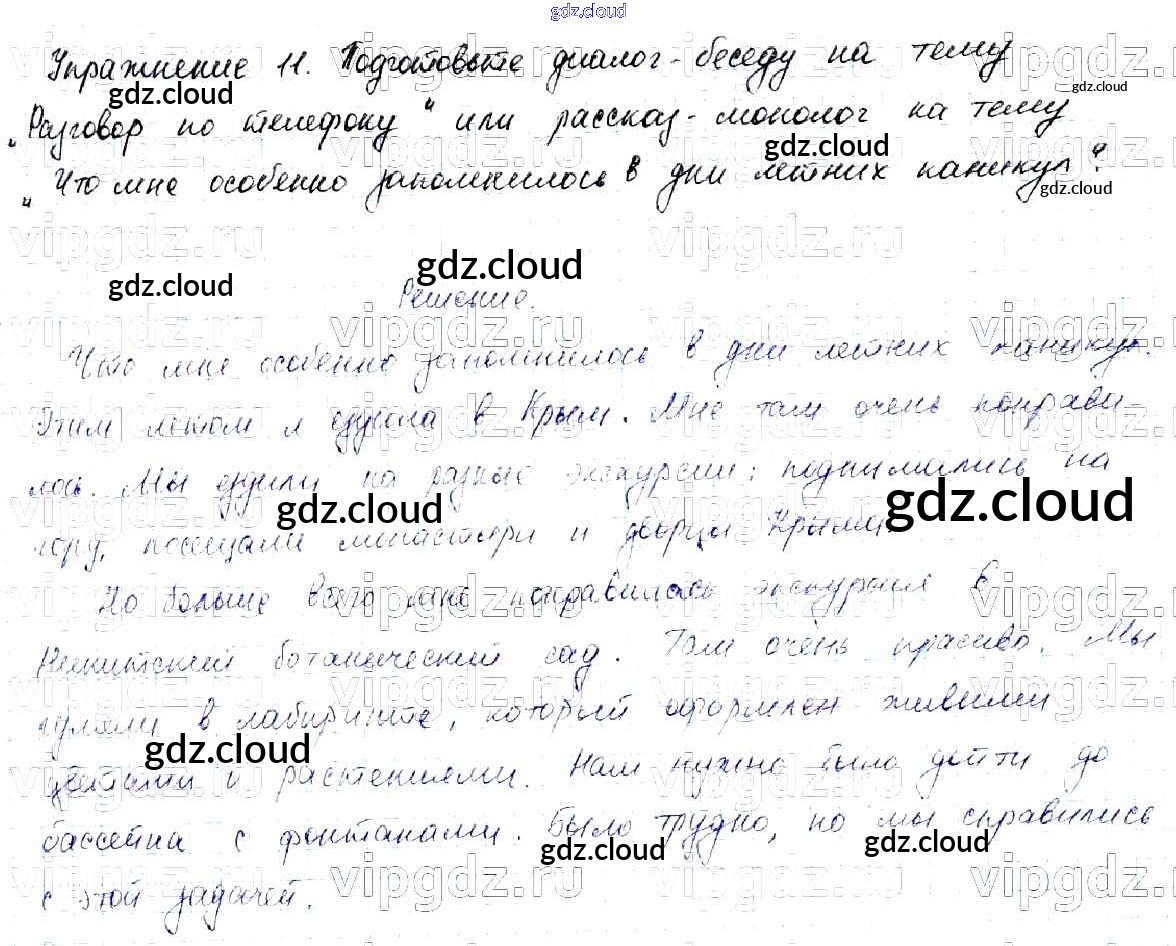 gdz.cloud
Упражнение 11. Подготовьте диалог-беседу на тему
„Разговор по телефону“ или рассказ-монолог на тему
„Что мне особенно запомнилось в дни летних каникул?
Решение.
Что мне особенно запомнилось в дни летних каникул.
Этим летом я ездила в Крым. Мне там очень понрави-
лось. Мы ездили на разные экскурсии: поднимались на
гору, посещали монастыри и дворцы Крыма.
Но больше всего мне понравилась экскурсия в
Никитский ботанический сад. Там очень красиво. Мы
гуляли в лабиринте, который оформлен живыми
цветами и растениями. Нам нужно было дойти до
бассейна с фонтанами. Было трудно, но мы справились
с этой задачей.